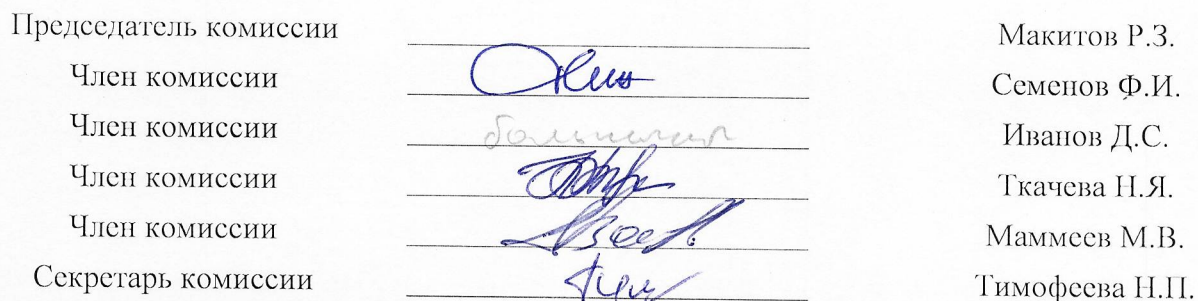 Председатель комиссии Макитов Р.З.
Член комиссии Семенов Ф.И.
Член комиссии больничный Иванов Д.С.
Член комиссии Ткачева Н.Я.
Член комиссии Маммеев М.В.
Секретарь комиссии Тимофеева Н.П.